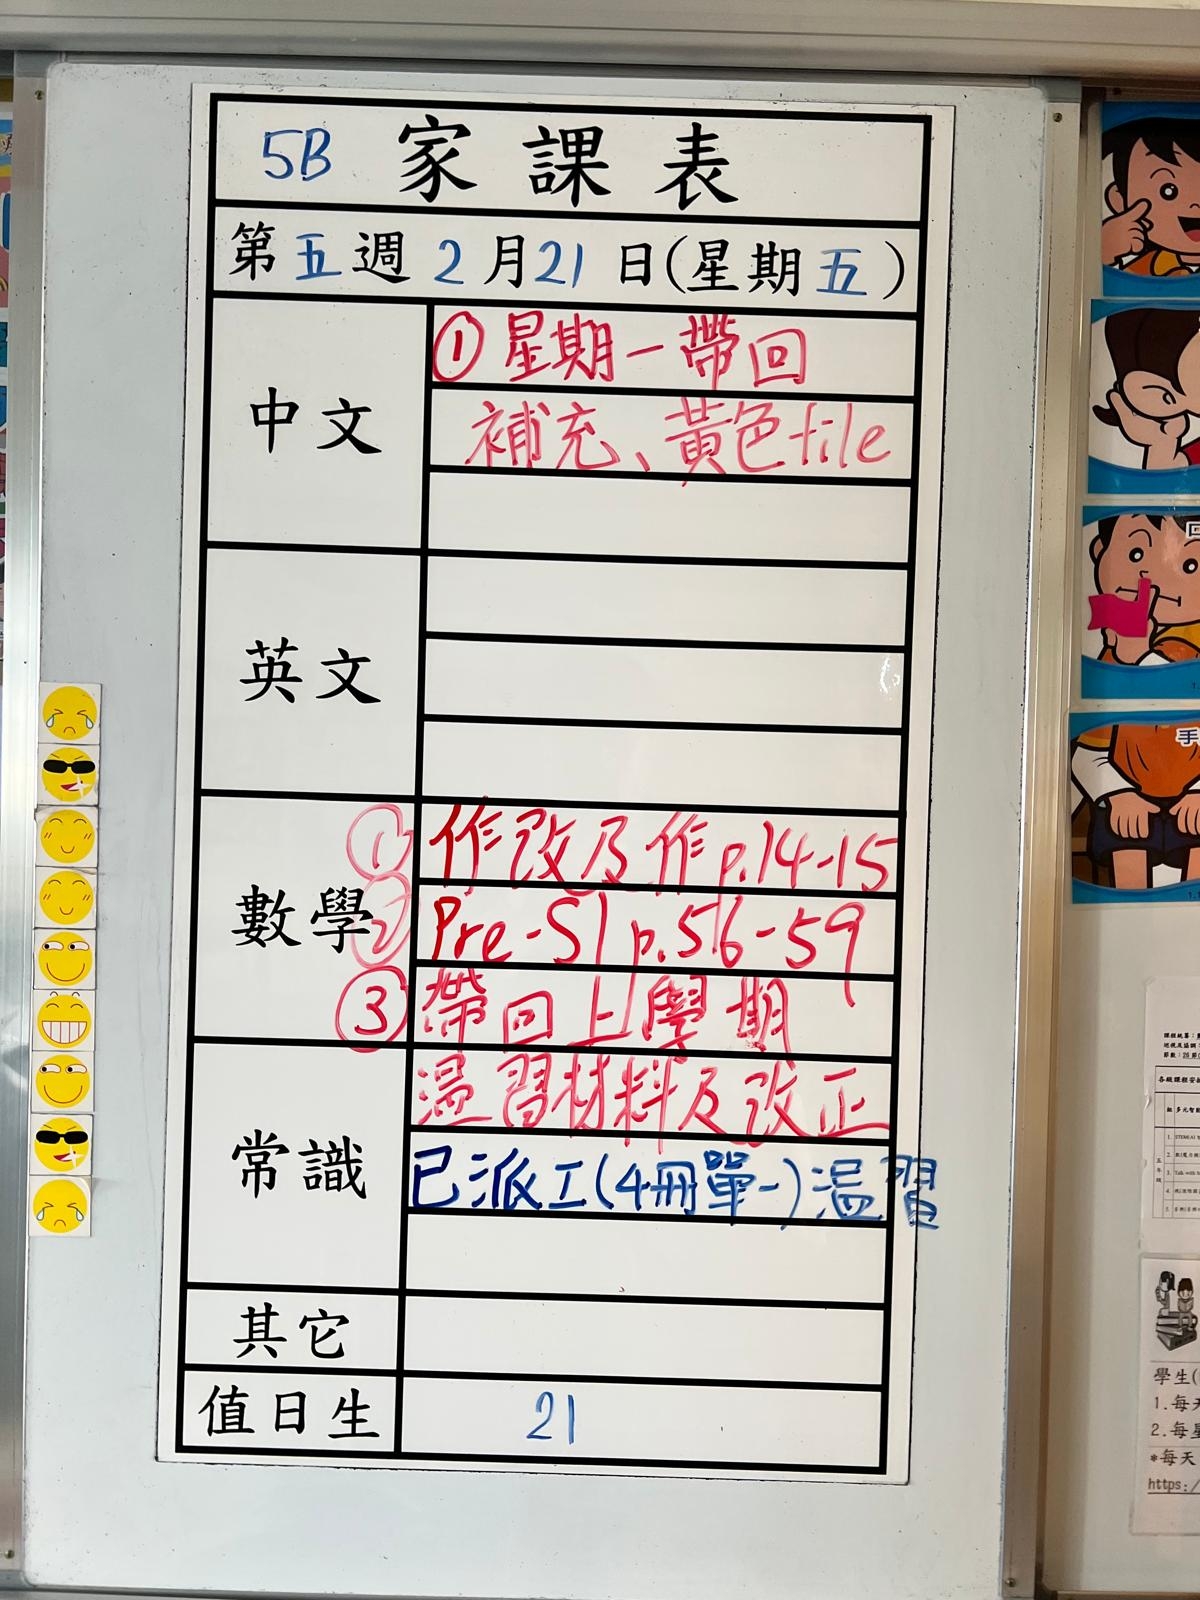 5B 家課表
第五週 2月21日(星期五)
中文
① 星期一帶回
補充、黃色file
英文
數學
① 作改及作p.14-15
② Pre-S1 p.56-59
③ 帶回上學期
溫習材料及改正
常識
已派工(4冊單一)溫習
其它
值日生
21
回
手
各級課程安排
學生(
1.每天
2.每星
*每天
https:/